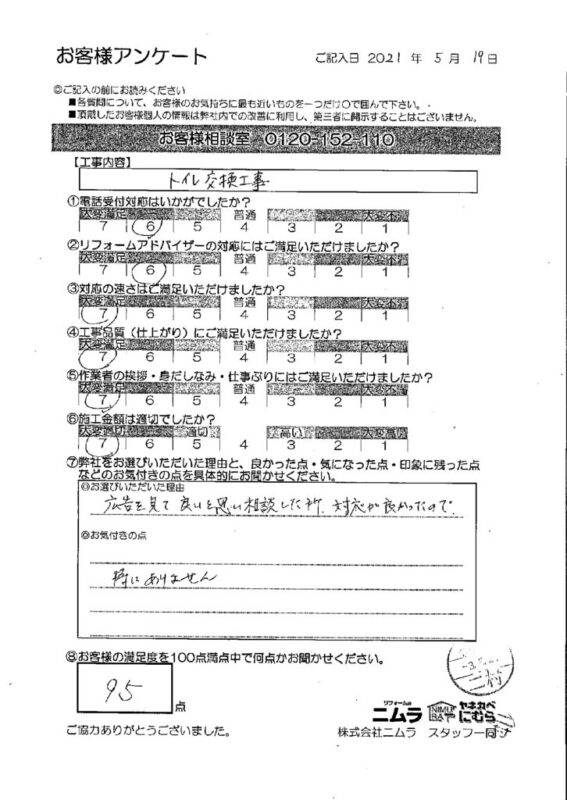 お客様アンケート
ご記入日 2021 年 5 月 19 日
◎ご記入の前にお読みください
■各質問について、お客様のお気持ちに最も近いものを一つだけ○で囲んで下さい。
■頂戴したお客様個人の情報は弊社内での改善に利用し、第三者に開示することはございません。
お客様相談室 0120-152-110
【工事内容】
トイレ交換工事
①電話受付対応はいかがでしたか?
大変満足 普通
7 6 5 4 3 2 1
②リフォームアドバイザーの対応にはご満足いただけましたか?
大変満足 普通
7 6 5 4 3 2 1
③対応の速さはご満足いただけましたか?
大変満足 普通
7 6 5 4 3 2 1
④工事品質(仕上がり)にご満足いただけましたか?
大変満足 普通
7 6 5 4 3 2 1
⑤作業者の挨拶・身だしなみ・仕事ぶりにはご満足いただけましたか?
大変満足 普通
7 6 5 4 3 2 1
⑥施工金額は適切でしたか?
大変適切 適切 高い 大変高い
7 6 5 4 3 2 1
⑦弊社をお選びいただいた理由と、良かった点・気になった点・印象に残った点
などのお気付きの点を具体的にお聞かせください。
◎お選びいただいた理由
広告を見て良いと思い相談した所、対応が良かったので。
◎お気付きの点
特にありません
⑧お客様の満足度を100点満点中で何点かお聞かせください。
95
点
ご協力ありがとうございました。
リフォームの
ニムラ
ヤネカベ
にむら
株式会社ニムラ スタッフ一同